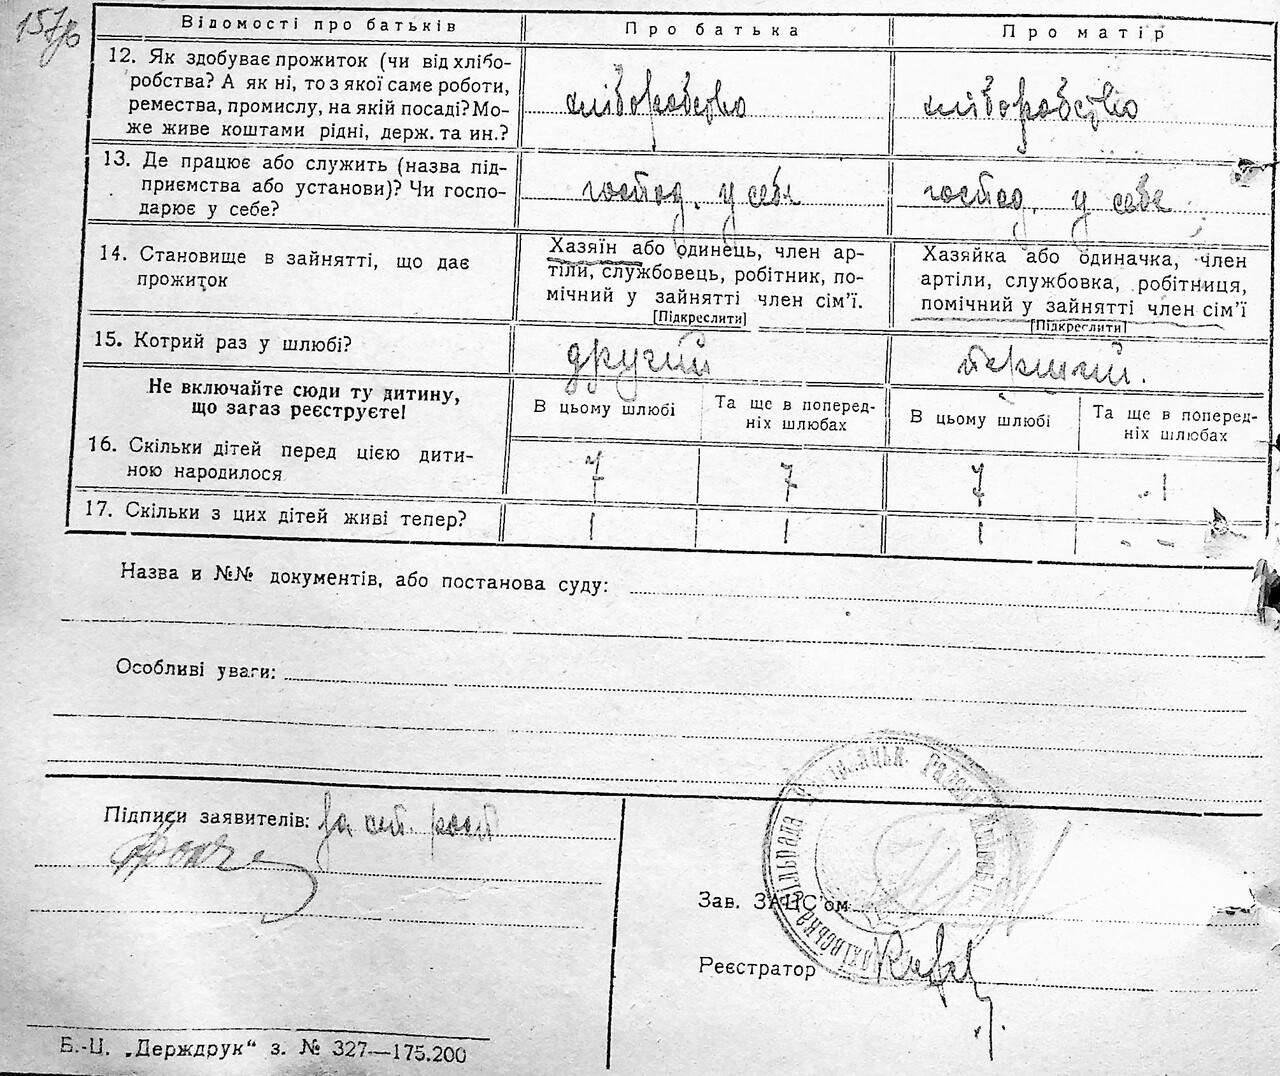 157зв
Відомості про батьків
Про батька
Про матір
12. Як здобуває прожиток (чи від хлібо-
робства? А як ні, то з якої саме роботи,
ремества, промислу, на якій посаді? Мо-
же живе коштами рідні, держ. та ин.?
хліборобство
хліборобство
13. Де працює або служить (назва під-
приємства або установи)? Чи госпо-
дарює у себе?
господ. у себе
господ. у себе
14. Становище в зайнятті, що дає
прожиток
Хазяїн або одинець, член ар-
тіли, службовець, робітник, по-
мічний у зайнятті член сім'ї.
[Підкреслити]
Хазяйка або одиначка, член
артіли, службовка, робітниця,
помічний у зайнятті член сім'ї
[Підкреслити]
15. Котрий раз у шлюбі?
другий
перший.
Не включайте сюди ту дитину,
що зараз реєструєте!
В цьому шлюбі
Та ще в поперед-
ніх шлюбах
В цьому шлюбі
Та ще в поперед-
ніх шлюбах
16. Скільки дітей перед цією дити-
ною народилося
7
7
7
17. Скільки з цих дітей живі тепер?
1
1
1
- -
Назва и №№ документів, або постанова суду:
Особливі уваги:
Підписи заявителів:
Зав. ЗАЦС'ом
Реєстратор
Б.-Ц. „Держдрук" з. № 327—175.200